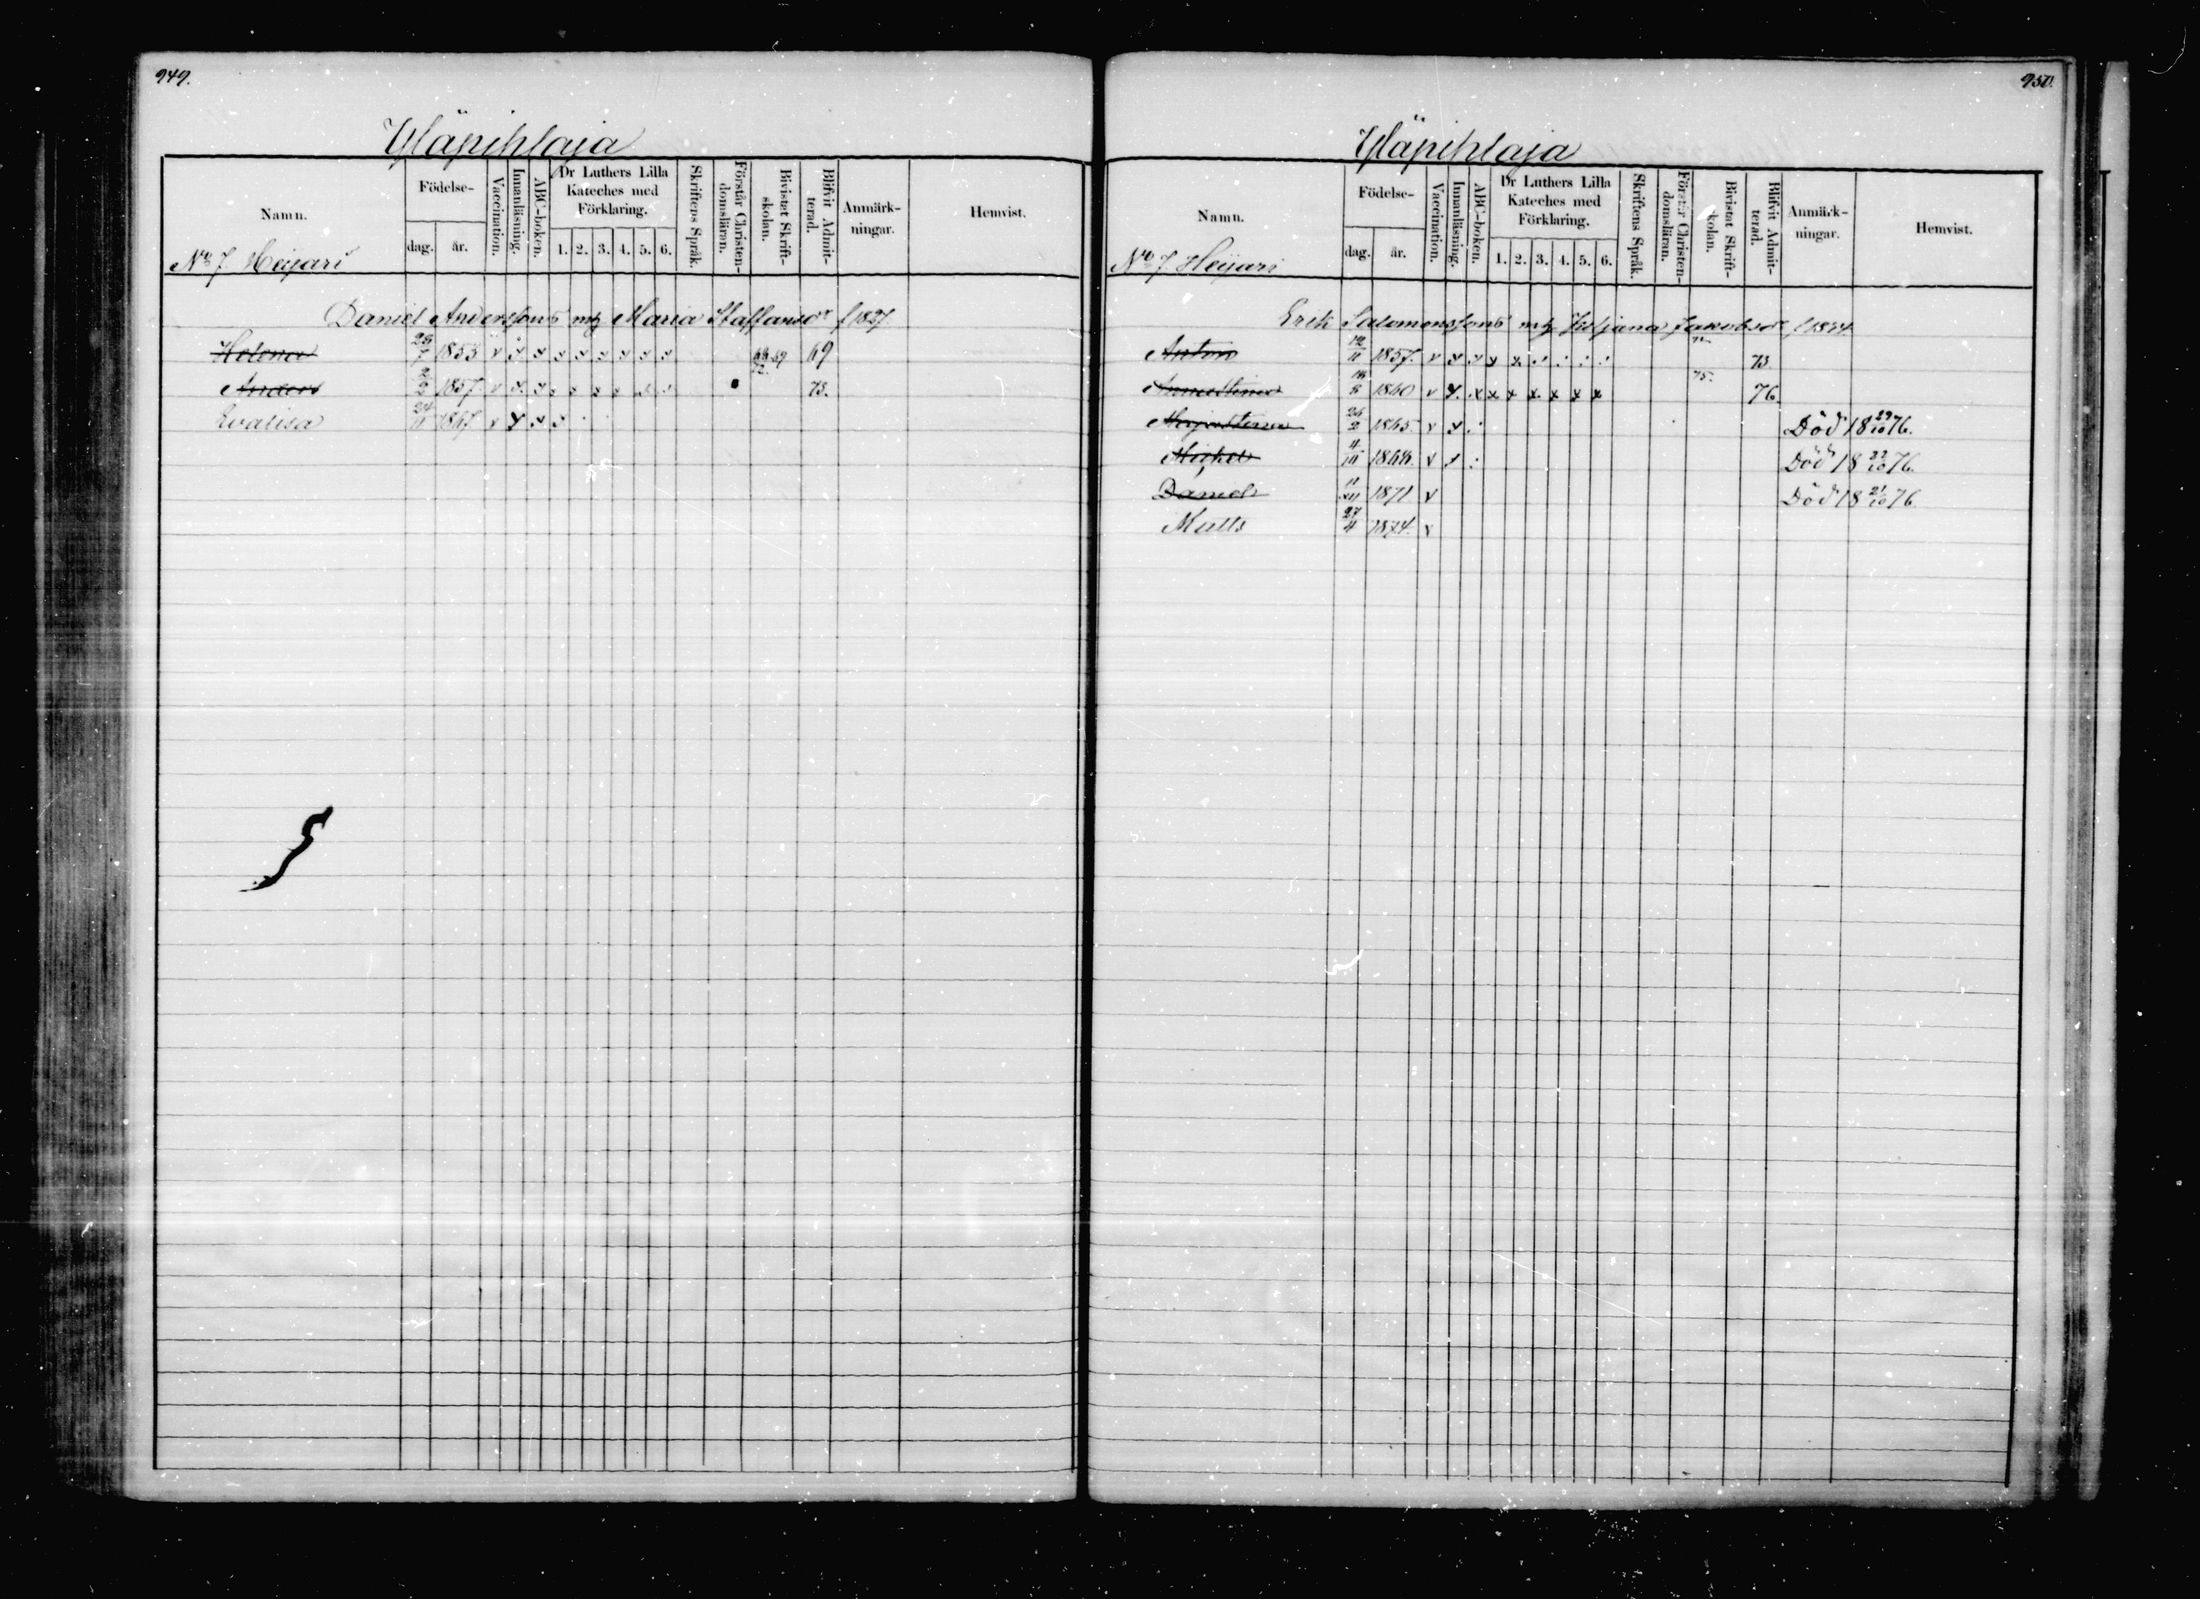 949.
Yläpihlaja
Namn.
Födelse-
dag.
år.
Vaccination.
Innanläsning.
ABC-boken.
Dr Luthers Lilla
Kateches med
Förklaring.
1. 2. 3. 4. 5. 6.
Skriftens Språk.
Förstår Christen-
domsläran.
Bivistat Skrift-
skolan.
Blifvit Admit-
terad.
Anmärk-
ningar.
Hemvist.
No 7 Heijari
Daniel Anderssons m. Maria Staffansdr f 1827
Helena 7 1853 v 69 69
Anders 2 1857. v 73.
Evalisa 24/11 1867 v
950.
Yläpihlaja
Namn.
Födelse-
dag.
år.
Vaccination.
Innanläsning.
ABC-boken.
Dr Luthers Lilla
Kateches med
Förklaring.
1. 2. 3. 4. 5. 6.
Skriftens Språk.
Förstår Christen-
domsläran.
Bivistat Skrift-
skolan.
Blifvit Admit-
terad.
Anmärk-
ningar.
Hemvist.
No 7 Heijari
Erik Salomonssons m. Juljana Jakobsdr f 1834
Anton 12/11 1857. v 73
Annastina 18 1860 v x x x x x x 75. 76
Majastina 2 1865. v Död 18 29/10 76.
Michel 1868. v Död 18 22/10 76.
Daniel 11 1871 v Död 18 21/10 76
Matts 27/4 1874. v